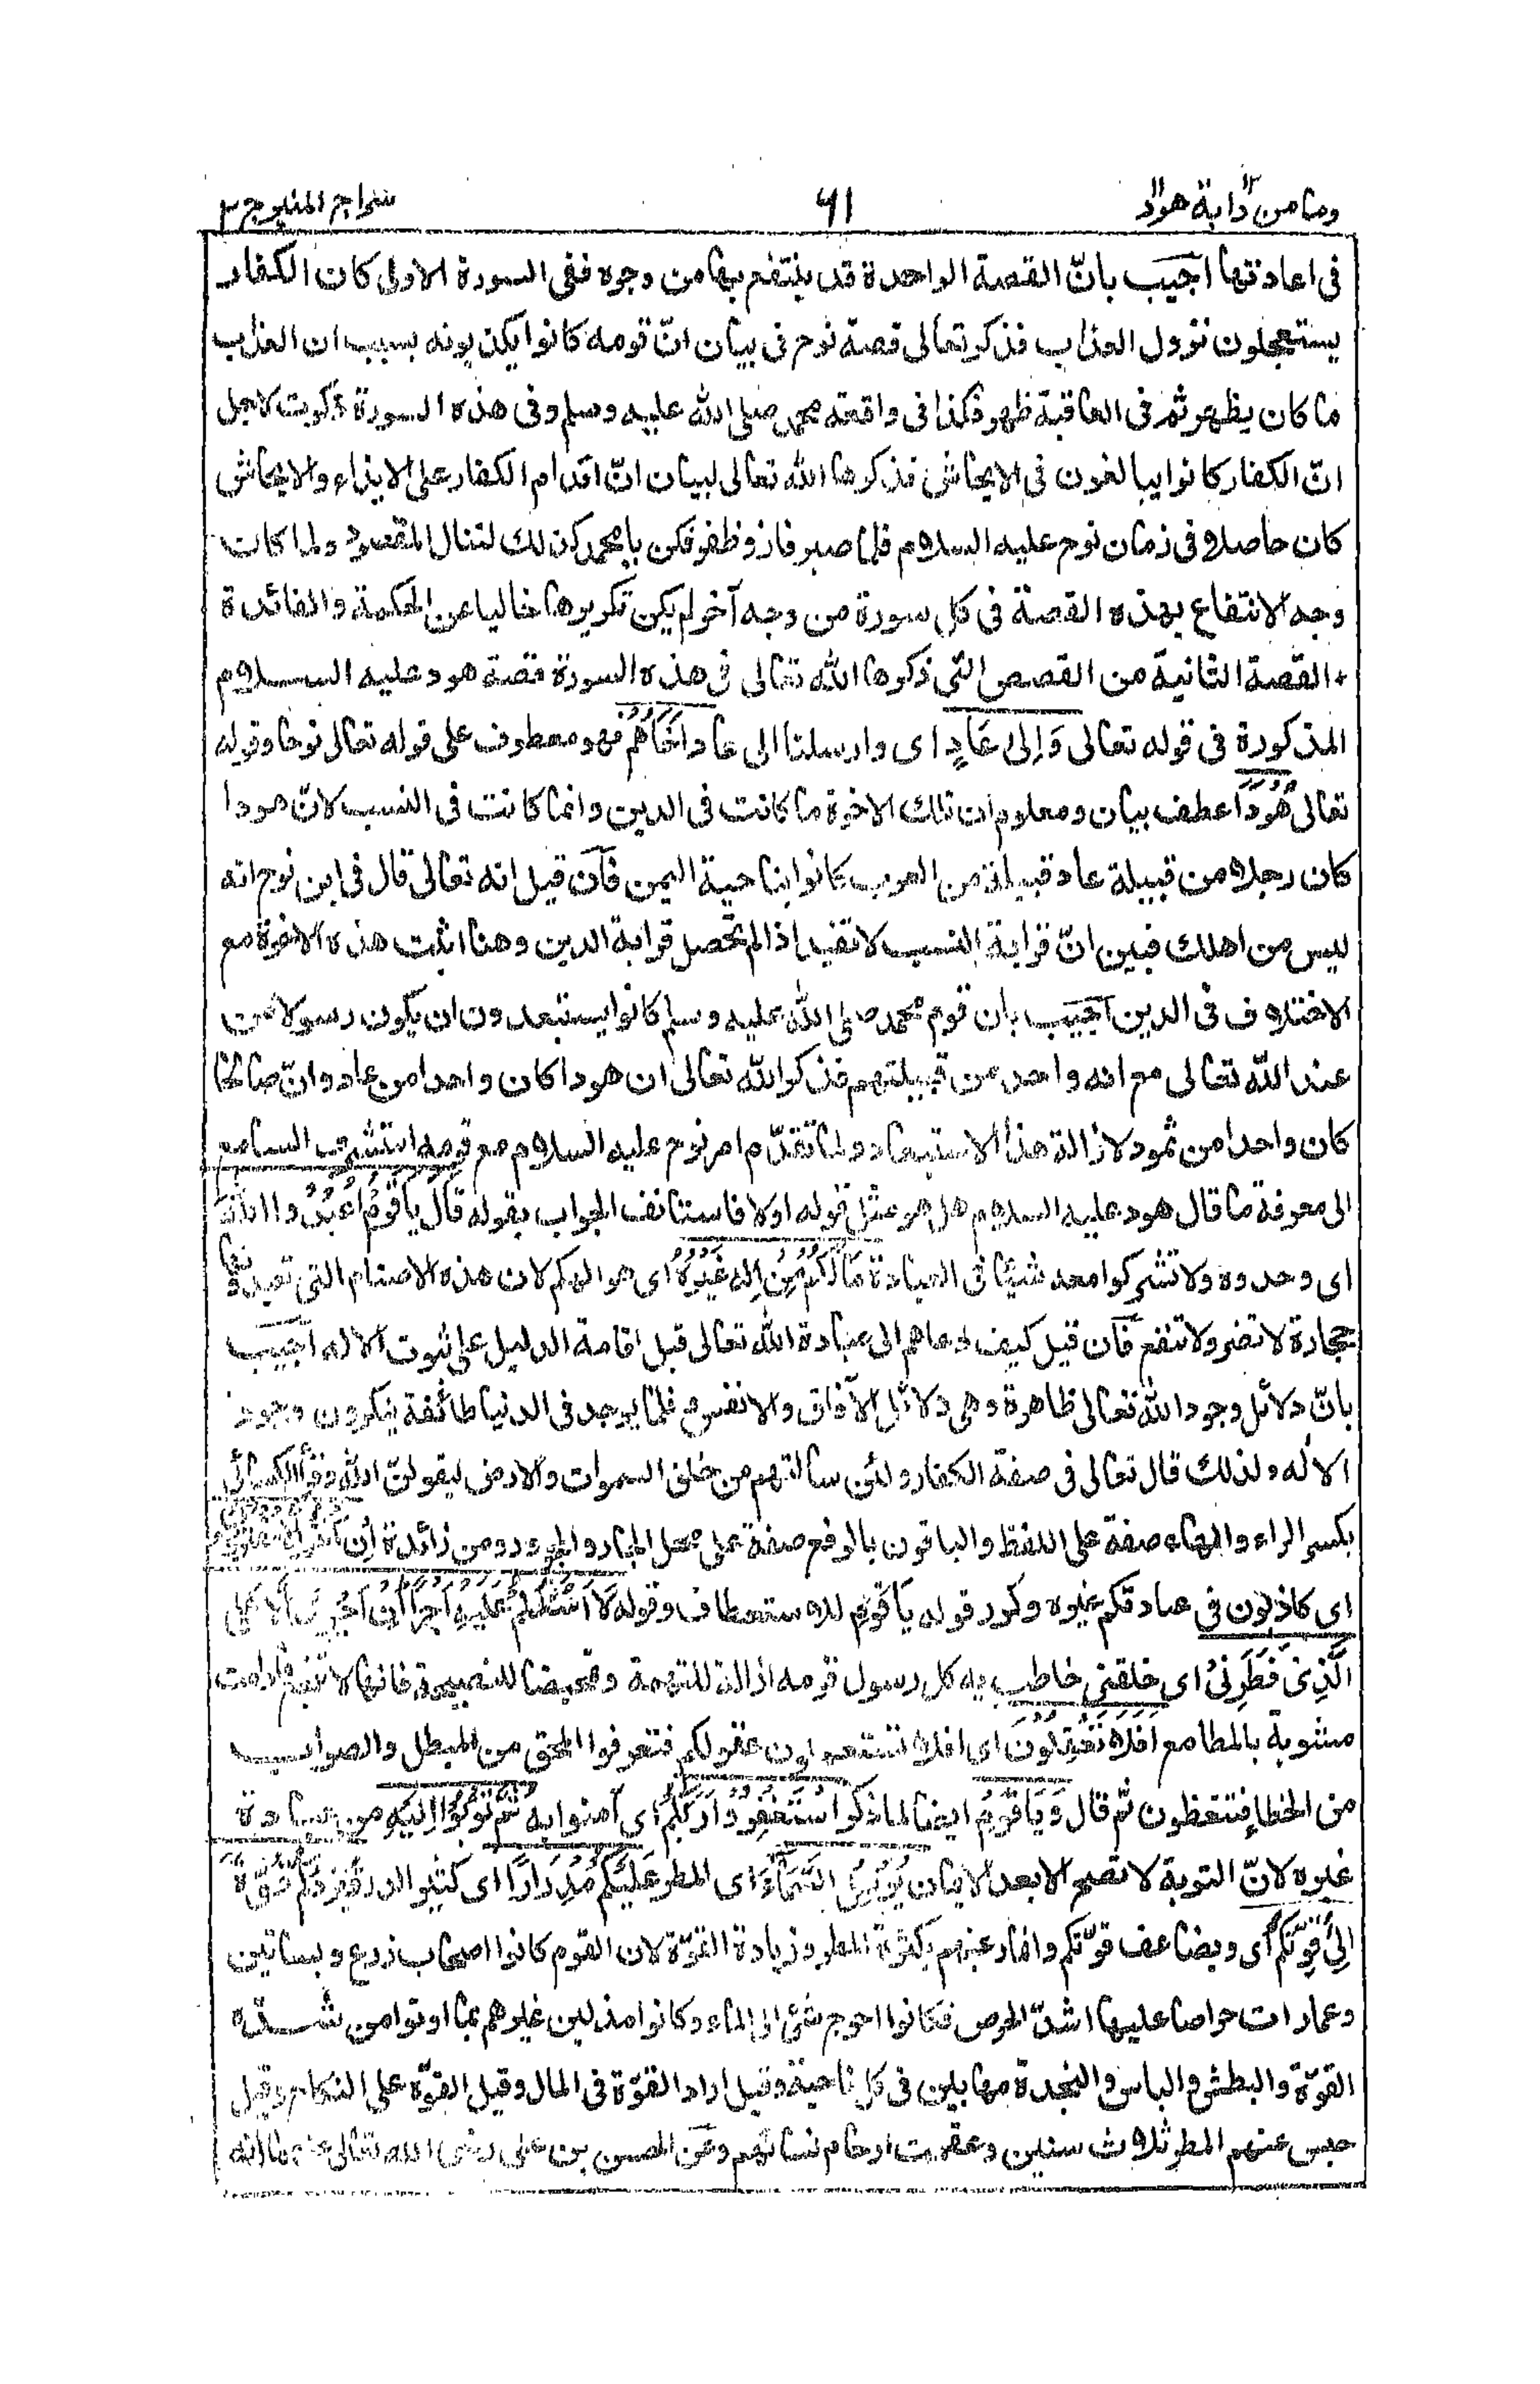 وما من دابة ١٢ هود ١١
٦١
سراج المنير ج ٢
فى اعادتها اجيب بانّ القصة الواحدة قد ينتفع بها من وجوه ففى السورة الاولى كان الكفار
يستعجلون نزول العذاب فذكر تعالى قصة نوح فى بيان انّ قومه كانوا يكذبونه بسبب ان العذاب
ما كان يظهر ثم فى العاقبة ظهر فكذا فى واقعته محمد صلى الله عليه وسلم وفى هذه السورة ذكرت لاجل
انّ الكفار كانوا يبالغون فى الايحاش فذكرها الله تعالى لبيان انّ اقدام الكفار على الايذاء والايحاش
كان حاصلا فى زمان نوح عليه السلام فلما صبر فاز وظفر فكن يا محمد كذلك لتنال المقصود ولما كان
وجه الانتفاع بهذه القصة فى كل سورة من وجه آخر لم يكن تكريرها خاليا عن الحكمة والفائدة
* القصة الثانية من القصص التى ذكرها الله تعالى فى هذه السورة قصة هود عليه السلام
المذكورة فى قوله تعالى وَاِلىٰ عَادٍ اى وارسلنا الى عاد اَخَاهُمْ فهو معطوف على قوله تعالى نوحا وقوله
تعالى هُوْدًا عطف بيان ومعلوم ان تلك الاخوة ما كانت فى الدين وانما كانت فى النسب لانّ هودا
كان رجلا من قبيلة عاد قبيلة من العرب كانوا بناحية اليمن فان قيل انه تعالى قال فى ابن نوح انه
ليس من اهلك فبين انّ قرابة النسب لا تفيد اذا لم تحصل قرابة الدين وهنا اثبت هذه الاخوة مع
الاختلاف فى الدين اجيب بان قوم محمد صلى الله عليه وسلم كانوا يستبعدون ان يكون رسولا من
عند الله تعالى مع انه واحد من قبيلتهم فذكر الله تعالى ان هودا كان واحدا من عاد وانّ صالحا
كان واحدا من ثمود لازالة هذا الاستبعاد ولما تقدّم امر نوح عليه السلام مع قومه استشرف السامع
الى معرفة ما قال هود عليه السلام هل هو مثل قوله اولا فاستانف الجواب بقوله قَالَ يَاقَوْمِ اعْبُدُوا اللهَ
اى وحدوه ولا تشركوا معه شيئا فى العبادة مَالَكُمْ مِّنْ اِلٰهٍ غَيْرُهٗ اى هو الهكم لان هذه الاصنام التى تعبدونها
حجارة لا تضر ولا تنفع فان قيل كيف دعاهم الى عبادة الله تعالى قبل اقامة الدليل على ثبوت الاله اجيب
بانّ دلائل وجود الله تعالى ظاهرة وهى دلائل الآفاق والانفس وقلما يوجد فى الدنيا طائفة ينكرون وجود
الاله ولذلك قال تعالى فى صفة الكفار ولئن سالتهم من خلق السموات والارض ليقولنّ الله وقرأ الكسائى
بكسر الراء والهاء صفة على اللفظ والباقون بالرفع صفة على محل الجار والمجرور ومن زائدة اِنْ اَنْتُمْ اِلَّا مُفْتَرُوْنَ
اى كاذبون فى عبادتكم غيره وكرر قوله يَاقَوْمِ للاستعطاف وقوله لَا اَسْئَلُكُمْ عَلَيْهِ اَجْرًا اِنْ اَجْرِىَ اِلَّا عَلَى
الَّذِىْ فَطَرَنِىْ اى خلقنى خاطب به كل رسول قومه ازالة للتهمة وتمحيضا للنصيحة فانها لا تنجع ما دامت
مشوبة بالمطامع اَفَلَا تَعْقِلُوْنَ اى افلا تستعملون عقولكم فتعرفوا المحق من المبطل والصواب
من الخطإ فتتعظون ثم قال وَيَاقَوْمِ ايضا لما ذكر اسْتَغْفِرُوْا رَبَّكُمْ اى آمنوا به ثُمَّ تُوْبُوْا اِلَيْهِ من عبادة
غيره لانّ التوبة لا تصح الا بعد الايمان يُرْسِلِ السَّمَآءَ اى المطر عَلَيْكُمْ مِدْرَارًا اى كثير الدر وَّيَزِدْكُمْ قُوَّةً
اِلىٰ قُوَّتِكُمْ اى ويضاعف قوّتكم وانما رغبهم بكثرة المطر وزيادة القوّة لان القوم كانوا اصحاب زرع وبساتين
وعمارات حراصا عليها اشدّ الحرص فكانوا احوج شئ الى الماء وكانوا مذلين غيرهم بما اوتوا من شدّة
القوّة والبطش والباس والنجدة مهابين فى كل ناحية وقيل اراد القوّة فى المال وقيل القوّة على النكاح وقيل
حبس عنهم المطر ثلاث سنين وعقمت ارحام نسائهم وعن الحسن بن على رضى الله تعالى عنهما انه